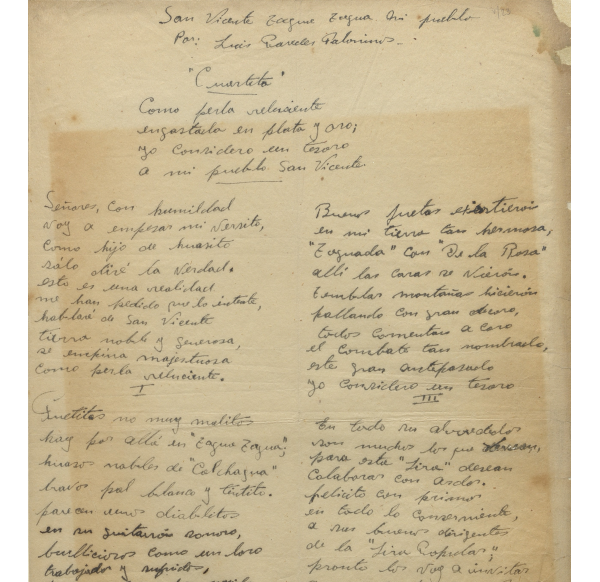 San Vicente Tagua Tagua mi pueblo
Por: Luis Paredes Palominos.
"Cuarteta"
Como perla reluciente
engastada en plata y oro;
yo considero un tesoro
a mi pueblo San Vicente.
Señores, con humildad
voy a empesar mi versito,
como hijo de huasito
sólo diré la verdad.
esto es una realidad
me han pedido que lo intente,
hablaré de San Vicente
tierra noble y generosa,
se empina majestuosa
como perla reluciente.
I
Puetitos no muy malitos
hay por allá en "Tagua Tagua";
huasos nobles de "Colchagua"
bravos pal blanco y tintito.
parecen unos diablitos
en su guitarrón sonoro,
bulliciosos como un loro
trabajados y sufridos,
Buenos puetas existierón
en mi tierra tan hermosa,
"Taguada" con "De la Rosa"
allí las caras se vierón.
temblar montañas hicierón
pallando con gran decoro,
todos comentan a coro
el combate tan nombrado,
este gran antepasado
yo considero un tesoro
III
En todo su alrededolos
son muchos los que
para esta "Lira" desean
Colaborar con
felicito con primor
en todo lo conserniente,
a sus buenos dirigentes
de la "Lira Popular";
pronto los voy a invitar